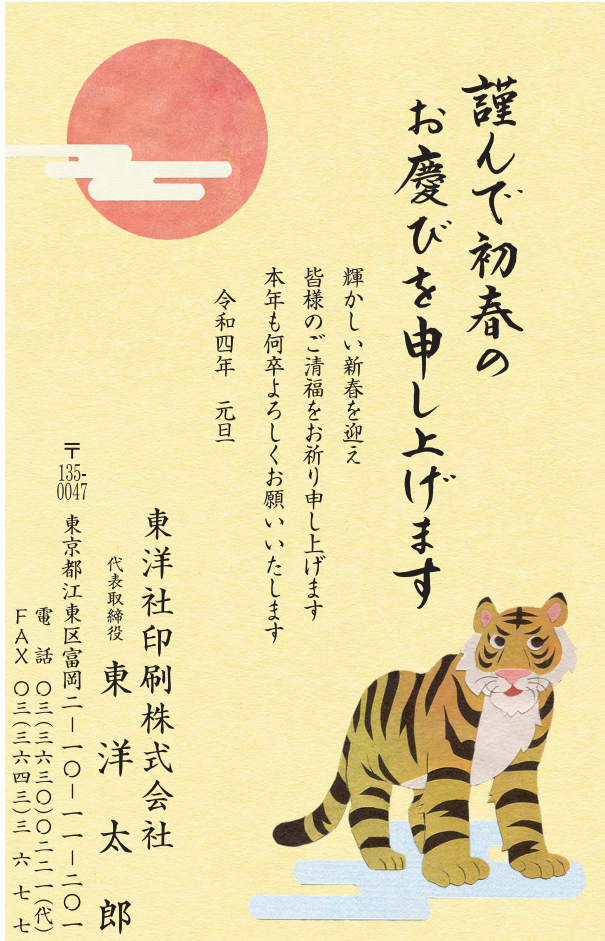 謹んで初春の
お慶びを申し上げます
輝かしい新春を迎え
皆様のご清福をお祈り申し上げます
本年も何卒よろしくお願いいたします
令和四年　元旦
東洋社印刷株式会社
代表取締役　東洋太郎
〒135-0047　東京都江東区富岡二－一〇－一一－二〇一
電話　〇三(三六三〇)〇二二一(代)
ＦＡＸ　〇三(三六四三)三六七七